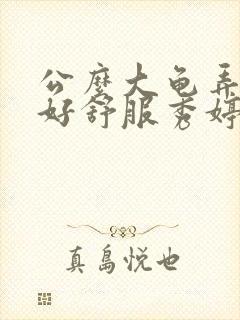 公麼大龟弄
好舒服秀婷
真島悦也